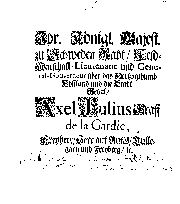 Ihr. Königl. Majest.
zu Schweden Raht / Feld-
Marschall-Lieutenant und Gene-
ral-Gouverneur über das Hertzogthumb
Ehstland und die Stadt
Reval /
Axel Julius Graff
de la Gardie,
Freyherr, Herr auf
und Freyberg / ic.